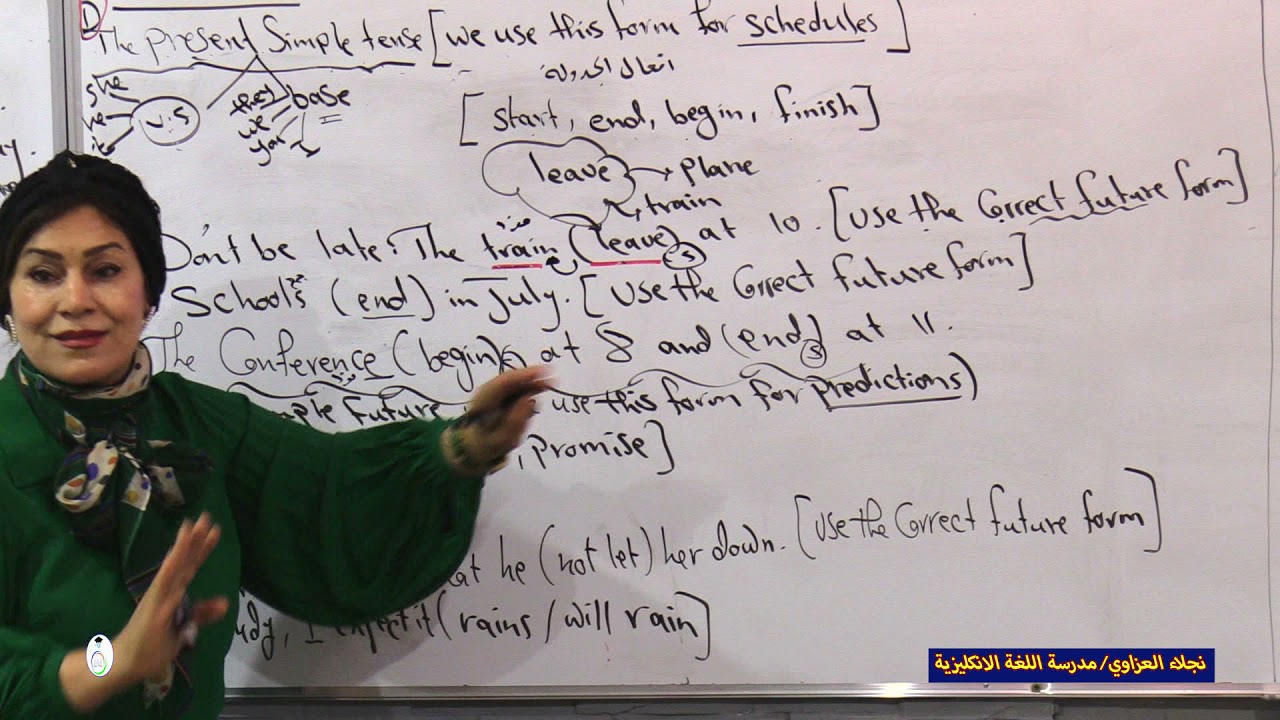 D
The present Simple tense [we use this form for schedules]
she they base
we
v.s you I
[start, end, begin, finish]
leave → plane
train
مفرد
Don't be late! The train (leave) s at 10. [Use the Correct future form]
School's (end) in July. [Use the Correct future form]
The Conference (begin) s at 8 and (end) s at 11.
مفرد
Future use this form for predictions)
, promise]
he (not let) her down. [Use the Correct future form]
, I expect it (rains / will rain]
نجلاء العزاوي/مدرسة اللغة الانكليزية